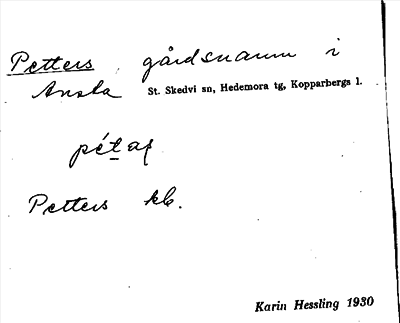 Petters, gårdsnamn i
Ansta St. Skedvi sn, Hedemora tg, Kopparbergs l.
pét aʃ
Petters kb.
Karin Hessling 1930